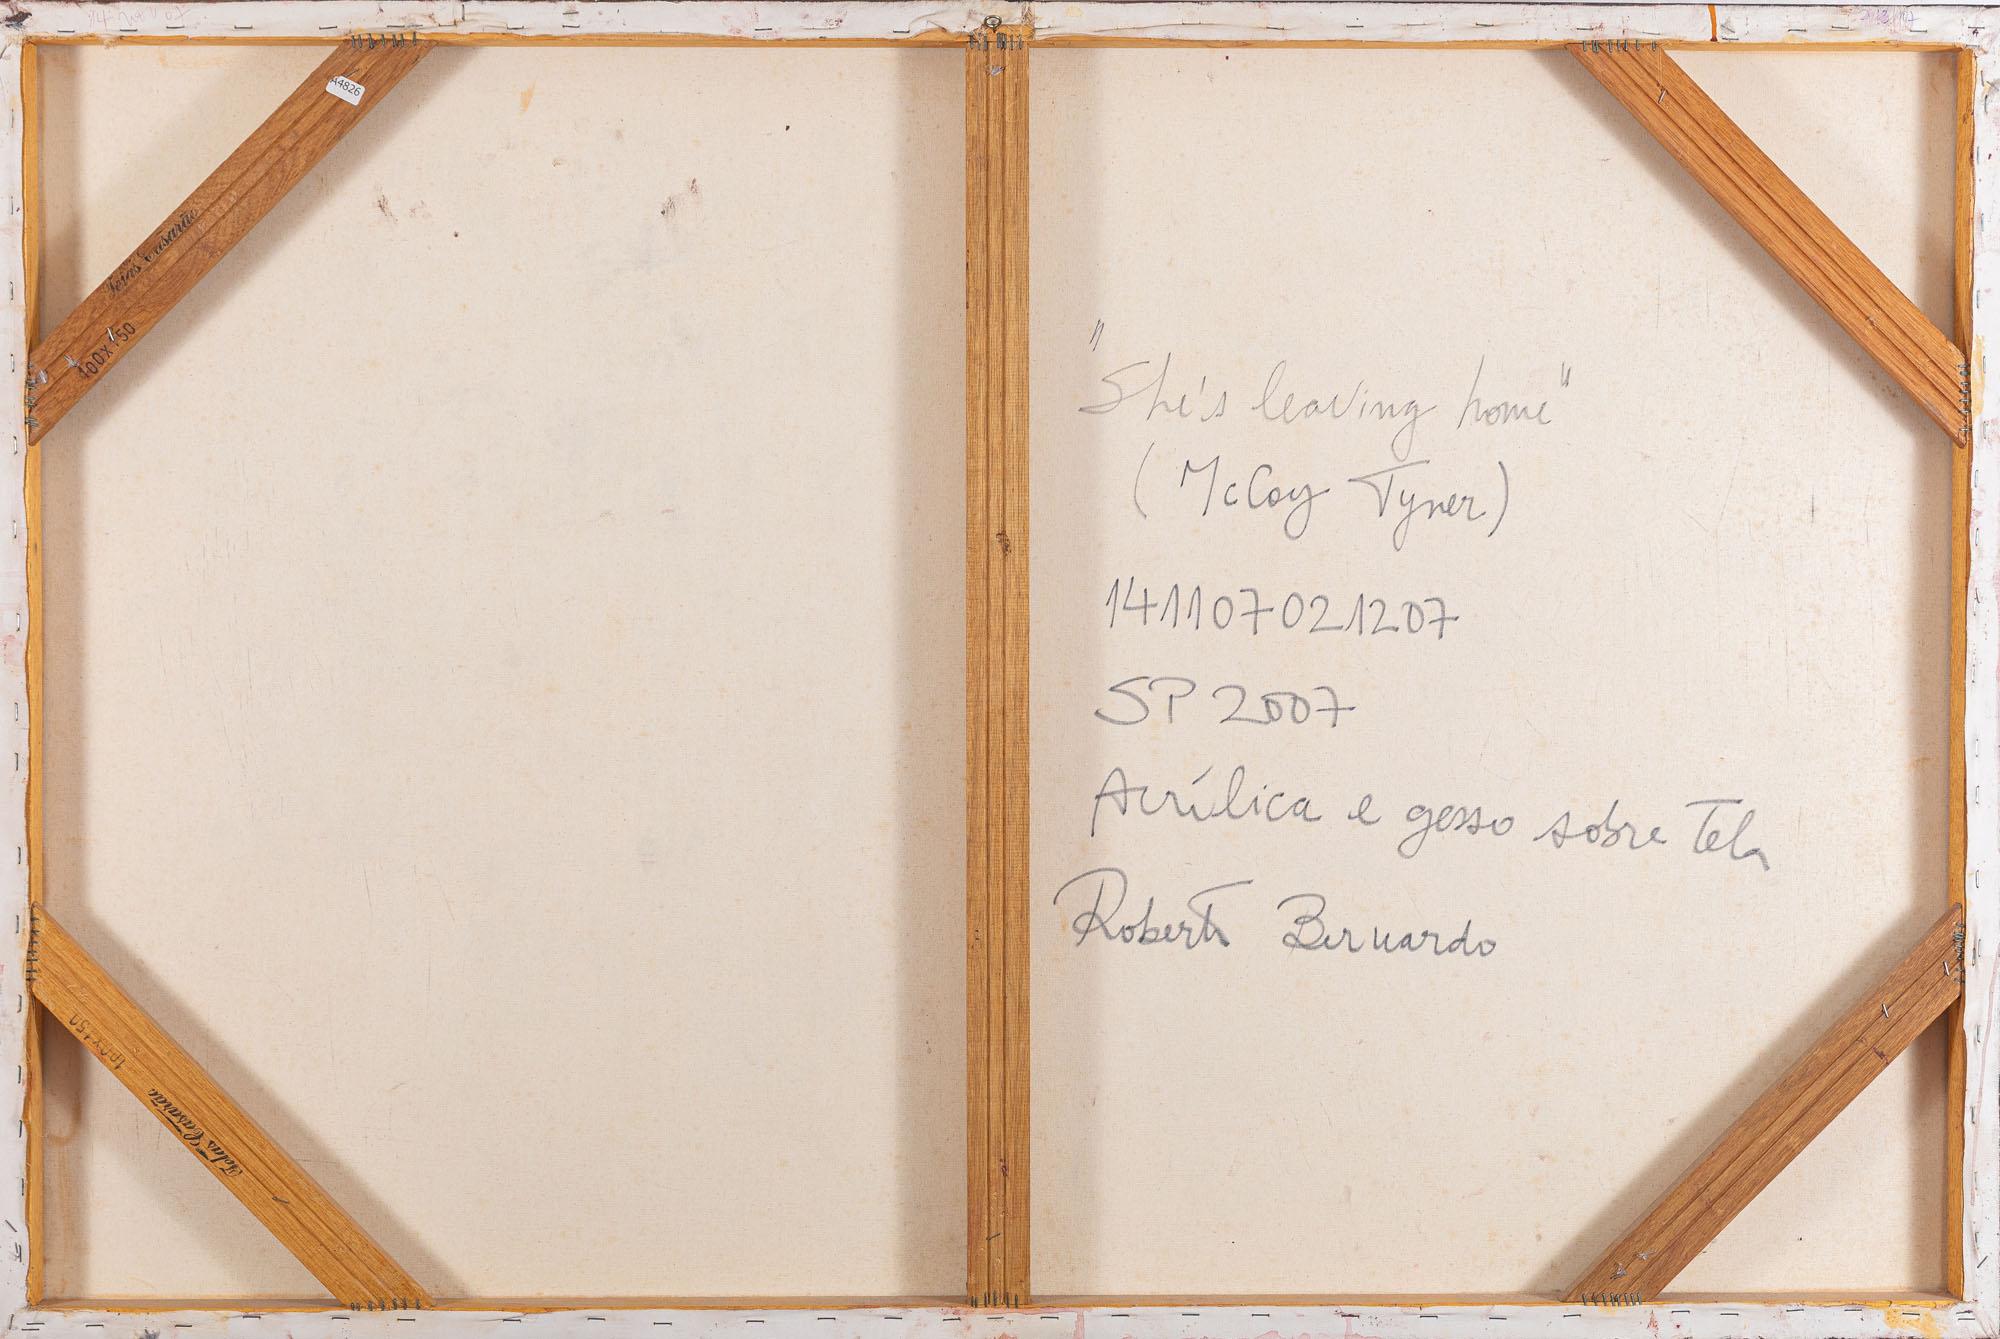 A4826
Telas Casarão
100X150
"She's leaving home"
(McCoy Tyner)
141107021207
SP 2007
Acrílica e gesso sobre Tela
Roberto Bernardo
100X150
Telas Casarão